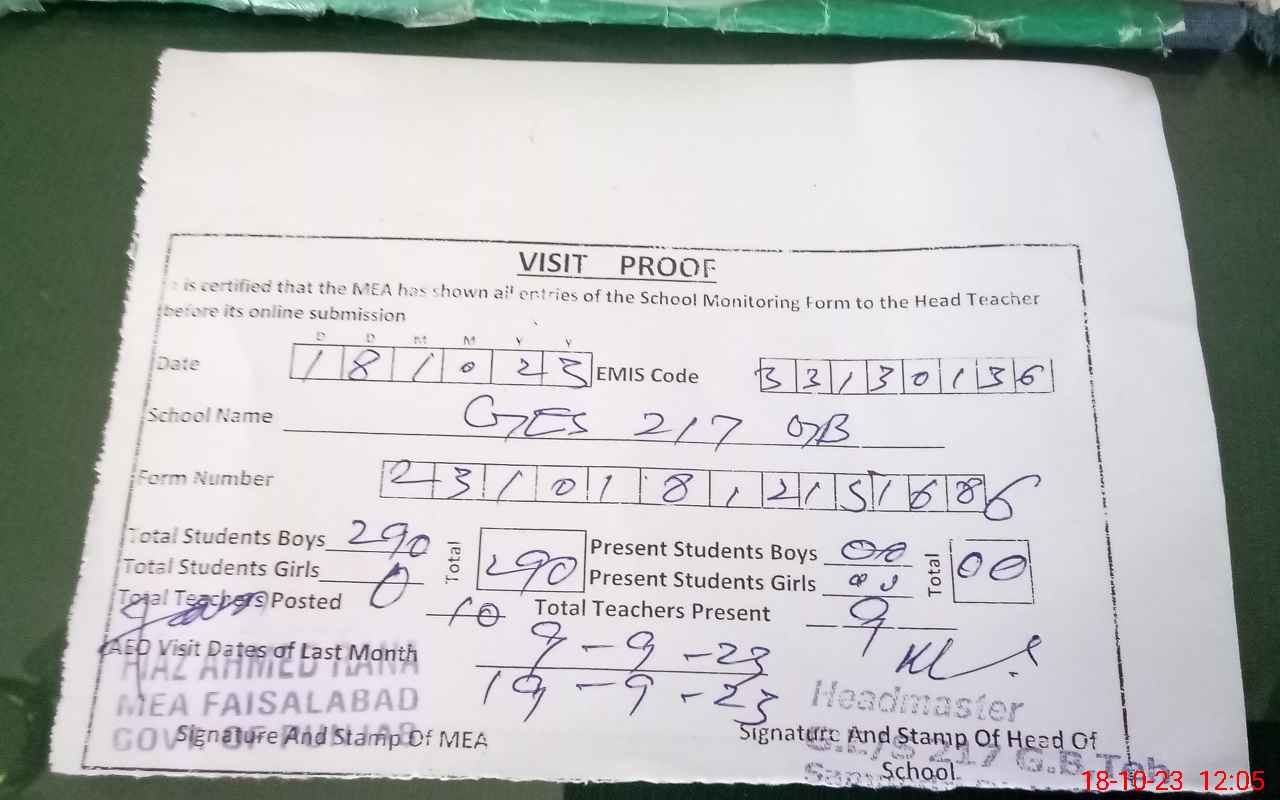 VISIT PROOF
is certified that the MEA has shown all entries of the School Monitoring Form to the Head Teacher
before its online submission
D D M M Y Y
Date 1 8 1 0 2 3 EMIS Code 3 3 1 3 0 1 3 6
School Name GES 217 GB
Form Number 2 3 1 0 1 8 1 2 1 5 1 6 8 6
Total Students Boys 290 Total 290 Present Students Boys 00 Total 00
Total Students Girls 0 Present Students Girls 00
Total Teachers Posted 10 Total Teachers Present 9
AEO Visit Dates of Last Month 9-9-23
19-9-23
RIAZ AHMED RANA
MEA FAISALABAD
GOVT OF PUNJAB
Signature And Stamp Of MEA
Headmaster
Signature And Stamp Of Head Of
School
217 G.B Teh
18-10-23 12:05